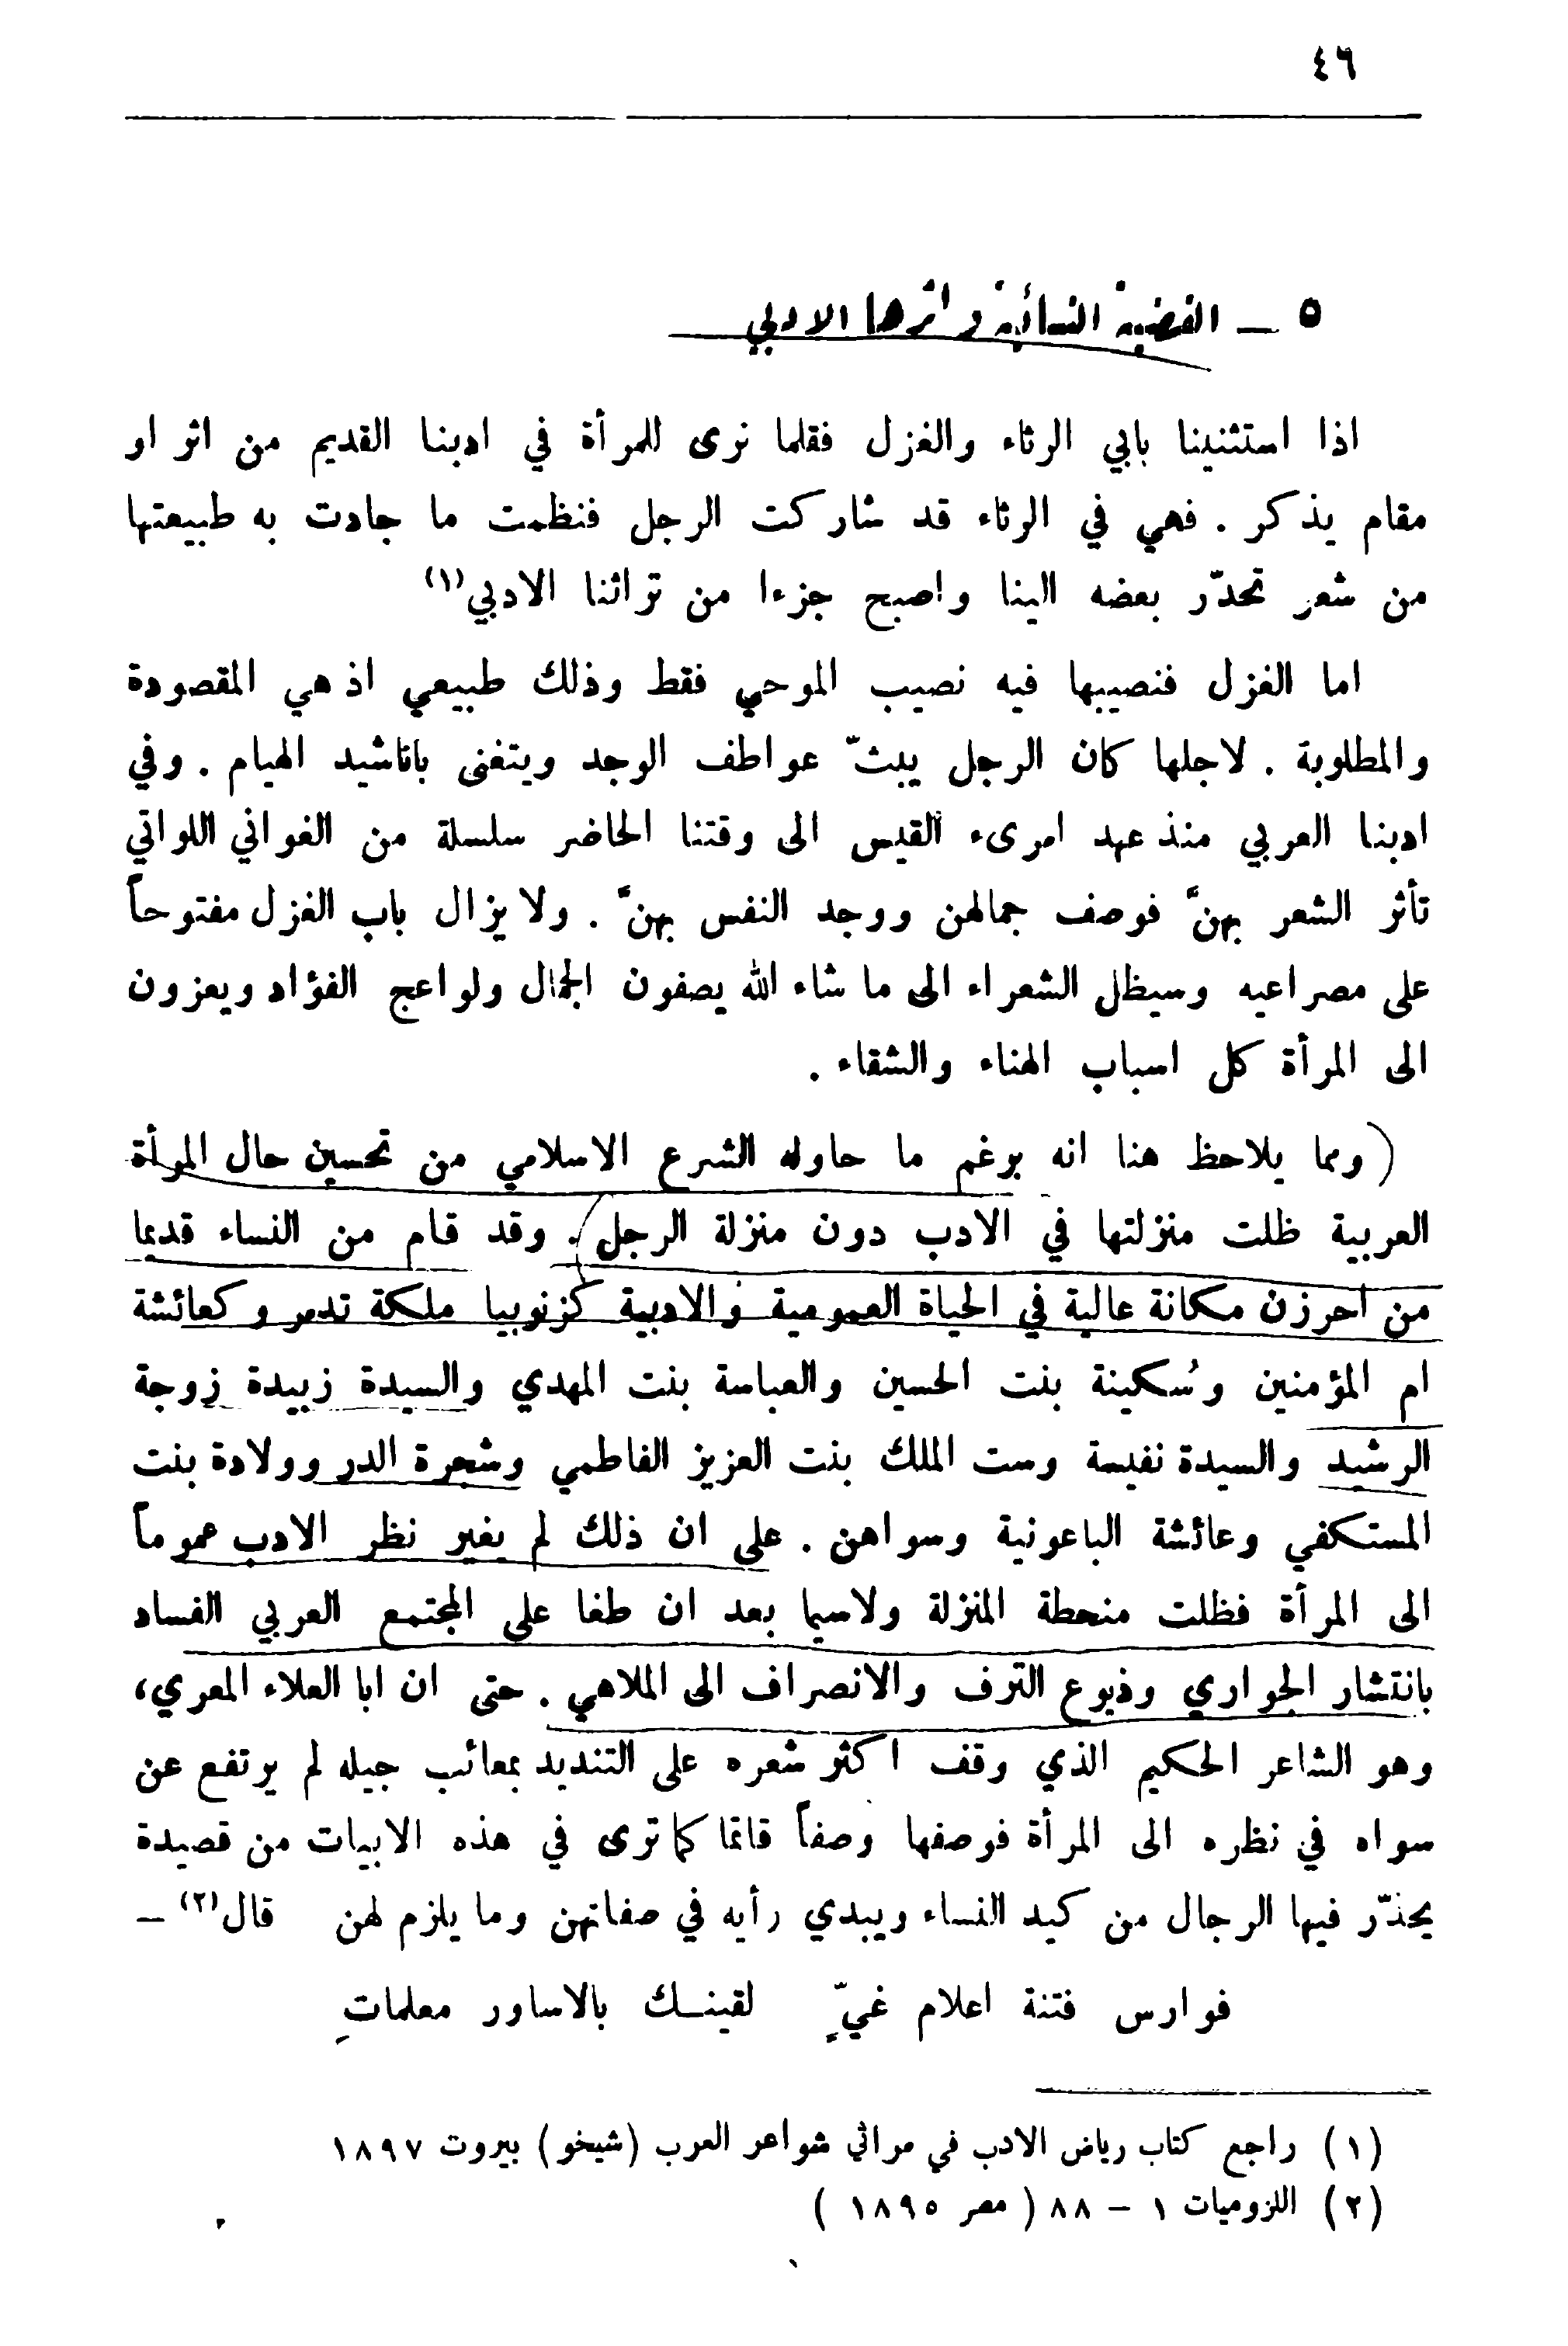 ٤٦
٥ — القضية النسائية واثرها الادبي
اذا استثنينا بابي الرثاء والغزل فقلما نرى للمرأة في ادبنا القديم من اثر او
مقام يذكر . فهي في الرثاء قد شاركت الرجل فنظمت ما جادت به طبيعتها
من شعر تحدّر بعضه الينا واصبح جزءا من تراثنا الادبي(١)
اما الغزل فنصيبها فيه نصيب الموحي فقط وذلك طبيعي اذ هي المقصودة
والمطلوبة . لاجلها كان الرجل يبثّ عواطف الوجد ويتغنى باناشيد الهيام . وفي
ادبنا العربي منذ عهد امرىء القيس الى وقتنا الحاضر سلسلة من الغواني اللواتي
تأثر الشعر بهنّ فوصف جمالهن ووجد النفس بهنّ . ولا يزال باب الغزل مفتوحاً
على مصراعيه وسيظل الشعراء الى ما شاء الله يصفون الجمال ولواعج الفؤاد ويعزون
الى المرأة كل اسباب الهناء والشقاء .
(ومما يلاحظ هنا انه برغم ما حاوله الشرع الاسلامي من تحسين حال المرأة
العربية ظلت منزلتها في الادب دون منزلة الرجل) . وقد قام من النساء قديما
من احرزن مكانة عالية في الحياة العمومية والادبية كزنوبيا ملكة تدمر وكعائشة
ام المؤمنين وسُكينة بنت الحسين والعباسة بنت المهدي والسيدة زبيدة زوجة
الرشيد والسيدة نفيسة وست الملك بنت العزيز الفاطمي وشجرة الدر وولادة بنت
المستكفي وعائشة الباعونية وسواهن . على ان ذلك لم يغير نظر الادب عموماً
الى المرأة فظلت منحطة المنزلة ولاسيما بعد ان طغا على المجتمع العربي الفساد
بانتشار الجواري وذيوع الترف والانصراف الى الملاهي . حتى ان ابا العلاء المعري،
وهو الشاعر الحكيم الذي وقف اكثر شعره على التنديد بمعائب جيله لم يرتفع عن
سواه في نظره الى المرأة فوصفها وصفاً قاتما كما ترى في هذه الابيات من قصيدة
يحذّر فيها الرجال من كيد النساء ويبدي رأيه في صفاتهن وما يلزم لهن قال(٢) —
فوارس فتنة اعلام غيٍّ لقينك بالاساور معلماتِ
(١) راجع كتاب رياض الادب في مراثي شواعر العرب (شيخو) بيروت ١٨٩٧
(٢) اللزوميات ١ – ٨٨ ( مصر ١٨٩٥ )